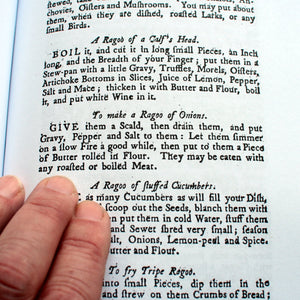 stewed,
chovies, Oisters and Mushrooms. You may put about
them, when they are dished, roasted Larks, or any
small Birds.
A Ragoo of a Calf's Head.
BOIL it, and cut it in long small Pieces, an Inch
long, and the Breadth of your Finger; put them in a
Stew-pan with a little Gravy, Truffles, Morels, Oisters,
Artichoke Bottoms in Slices, Juice of Lemon, Pepper,
Salt and Mace; thicken it with Butter and Flour, boil
it, and put white Wine in it.
To make a Ragoo of Onions.
GIVE them a Scald, then drain them, and put
Gravy, Pepper and Salt to them: Let them simmer
on a slow Fire a good while, then put to them a Piece
of Butter rolled in Flour. They may be eaten with
any roasted or boiled Meat.
A Ragoo of stuffed Cucumbers.
as many Cucumbers as will fill your Dish,
Scoop out the Seeds, blanch them with
then put them in cold Water, stuff them
and Sewet shred very small; season
Salt, Onions, Lemon-peel and Spice.
Butter and Flour.
To fry Tripe Ragoo.
into small Pieces, dip them in the
and strew on them Crumbs of Bread;